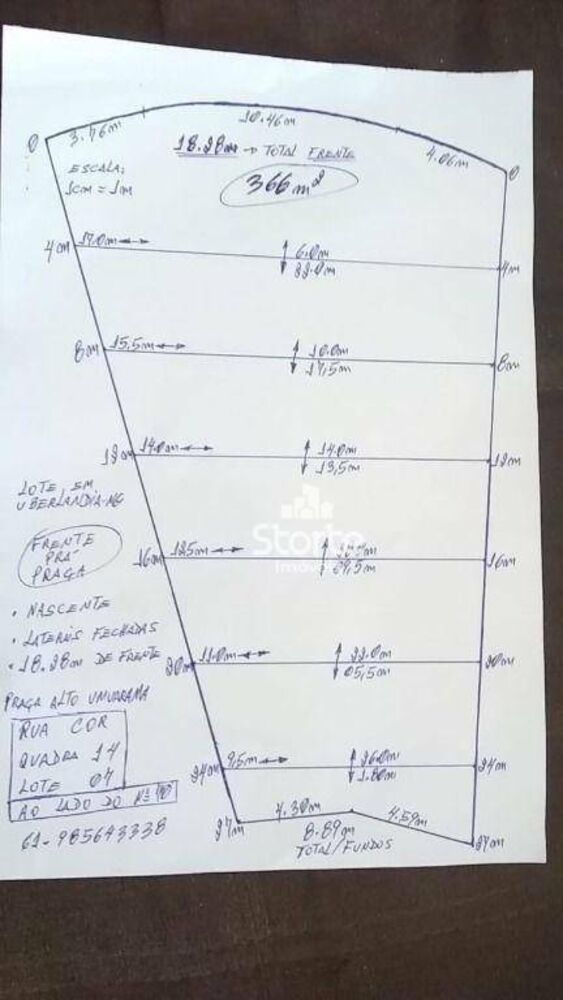 10.46m
3.76m
4.06m
0
0
18.28m → TOTAL FRENTE
ESCALA:
1cm = 1m
366m²
4m
17.0m
6.0m
22.0m
4m
8m
15,5m
10.0m
17,5m
8m
12m
14.0m
14.0m
13,5m
12m
LOTE, EM
UBERLANDIA-MG
Storte
Imóveis
FRENTE
PRÁ
PRAÇA
16m
12,5m
09,5m
16m
• NASCENTE
• LATERAIS FECHADAS
• 18.28m DE FRENTE
20m
11.0m
22.0m
05,5m
20m
PRAÇA ALTO UMUARAMA
RUA COR
QUADRA 14
LOTE 07
AO LADO DO Nº 90
61-985643338
24m
9,5m
26.0m
1.80m
24m
27m
4.30m
4.59m
27m
8.89m
TOTAL/FUNDOS